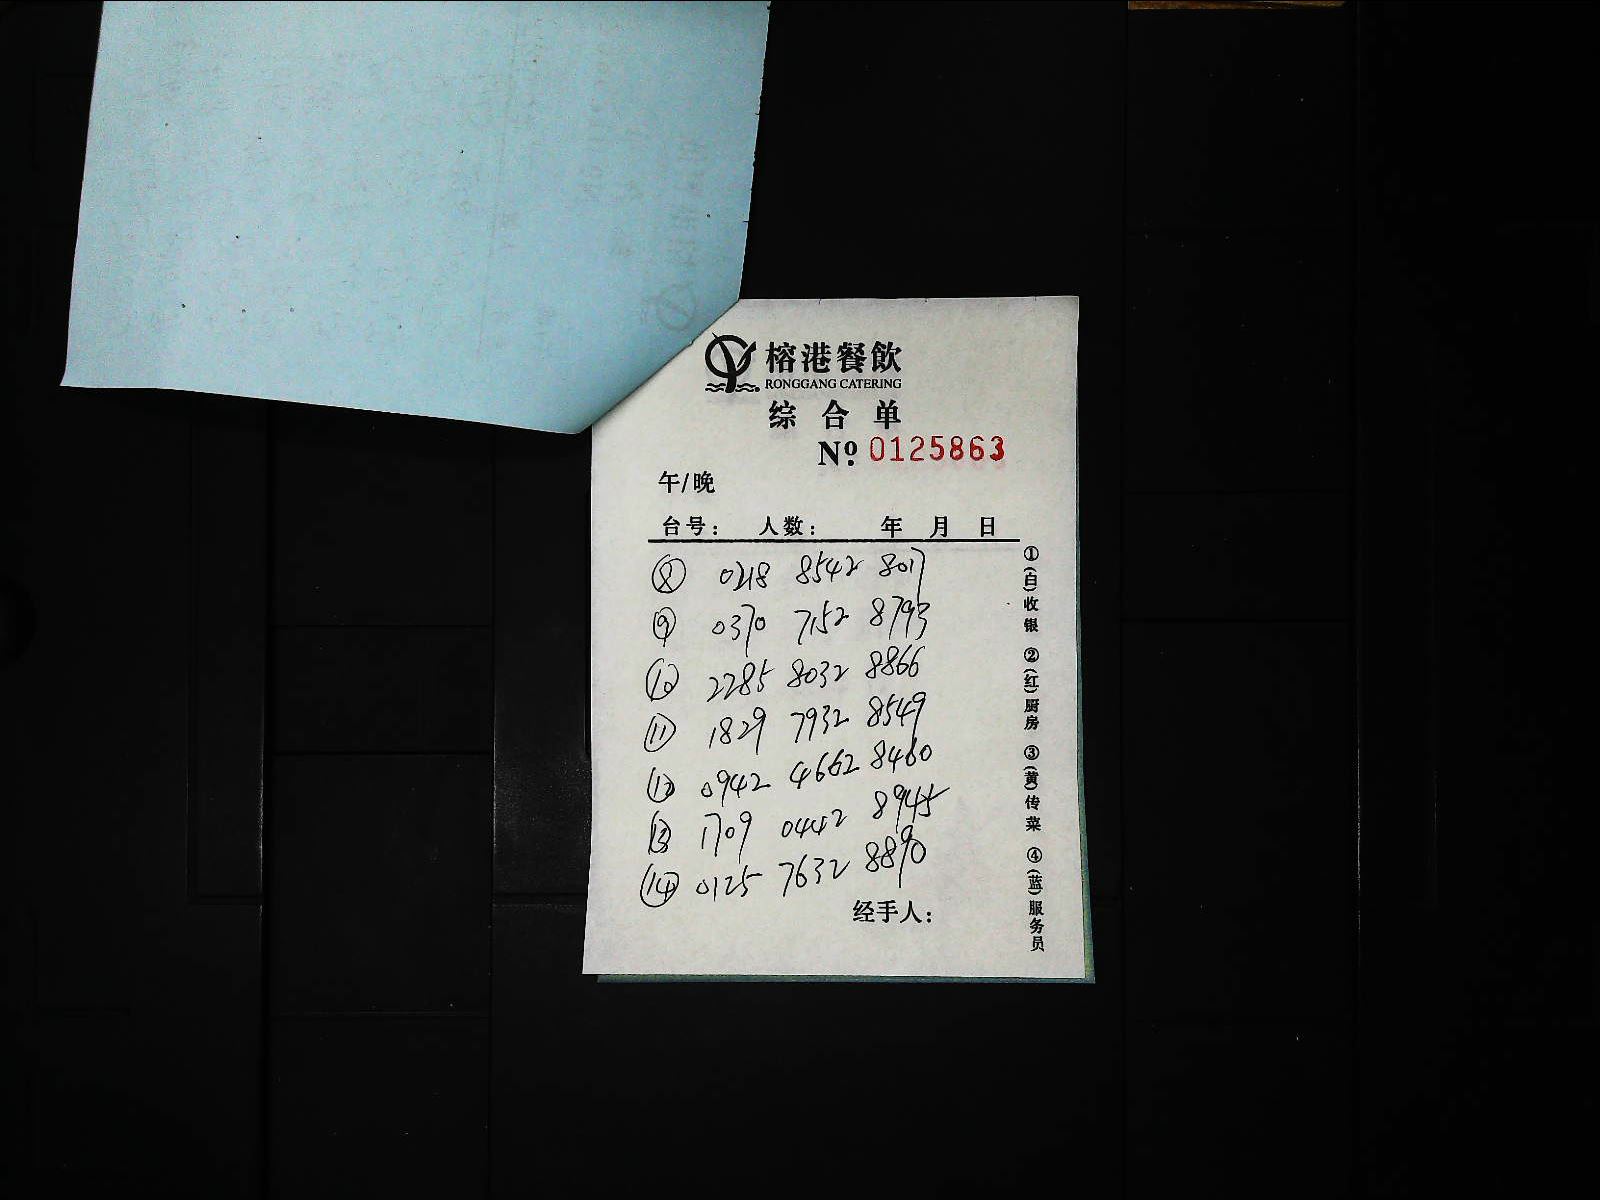 榕港餐飲
RONGGANG CATERING
综合单
Nº: 0125863
午/晚
台号： 人数： 年 月 日
⑧ 0218 8542 8017
⑨ 0370 7152 8793
⑩ 2285 8032 8866
⑪ 1829 7932 8549
⑫ 0942 4662 8460
⑬ 1709 0442 8945
⑭ 0125 7632 8890
经手人：
①(白)收银 ②(红)厨房 ③(黄)传菜 ④(蓝)服务员